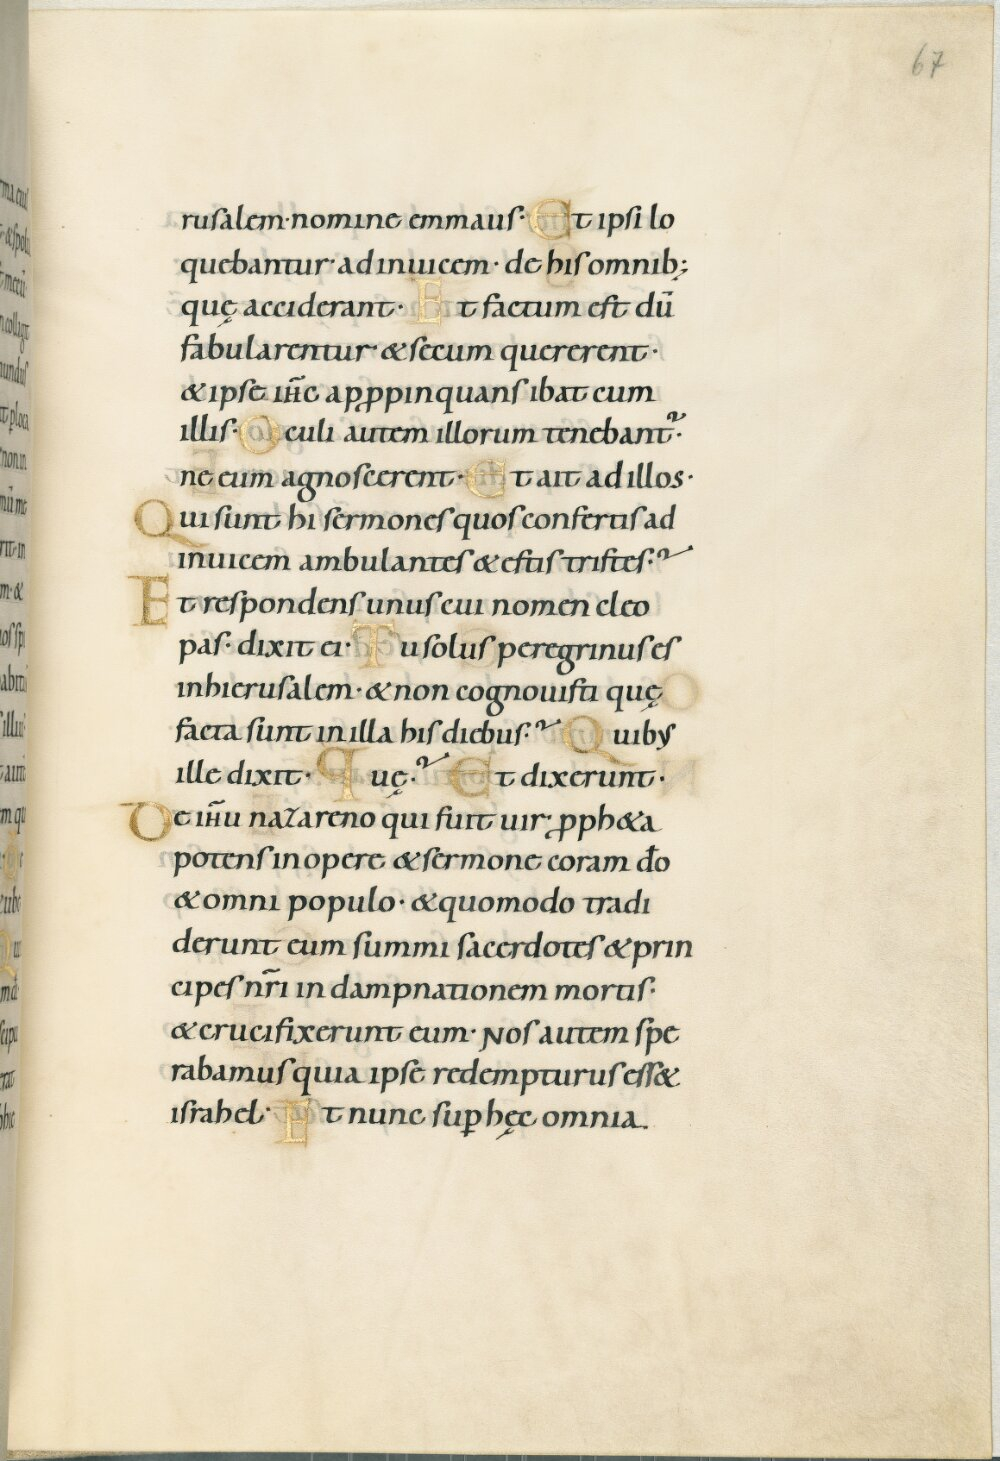 67
ruſalem·nomine emmauſ· Et ipſi lo
quebantur·adinuicem· de hiſ omnib;
quę acciderant· Et factum eſt dū
fabularentur·&ſecum quererent·
&ipſe ih̄c apꝓpinquanſ ibat cum
illiſ· Oculi autem illorum tenebant᷑·
ne eum agnoſcerent· Et ait ad illos·
Qui ſunt hi ſermoneſ quoſ confertiſ ad
inuicem ambulanteſ &eſtiſ triſteſ·
Et reſpondenſ unuſ cui nomen cleo
paſ· dixit ei· Tu ſoluſ peregrinuſ eſ
inhieruſalem·&non cognouiſti quę
facta ſunt in illa hiſ diebuſ· Quibꝰ
ille dixit· Quę· Et dixerunt·
De ih̄u nazareno qui fuit uir· ꝓph&a
potenſ in opere &ſermone coram d̄o
&omni populo· &quomodo tradi
derunt eum ſummi ſacerdoteſ &prin
cipeſ nr̄i in dampnationem mortiſ·
&crucifixerunt eum· Noſ autem ſpe
rabamuſ quia ipſe redempturuſ eſſ&
iſrahel· Et nunc ſuꝑ hęc omnia.